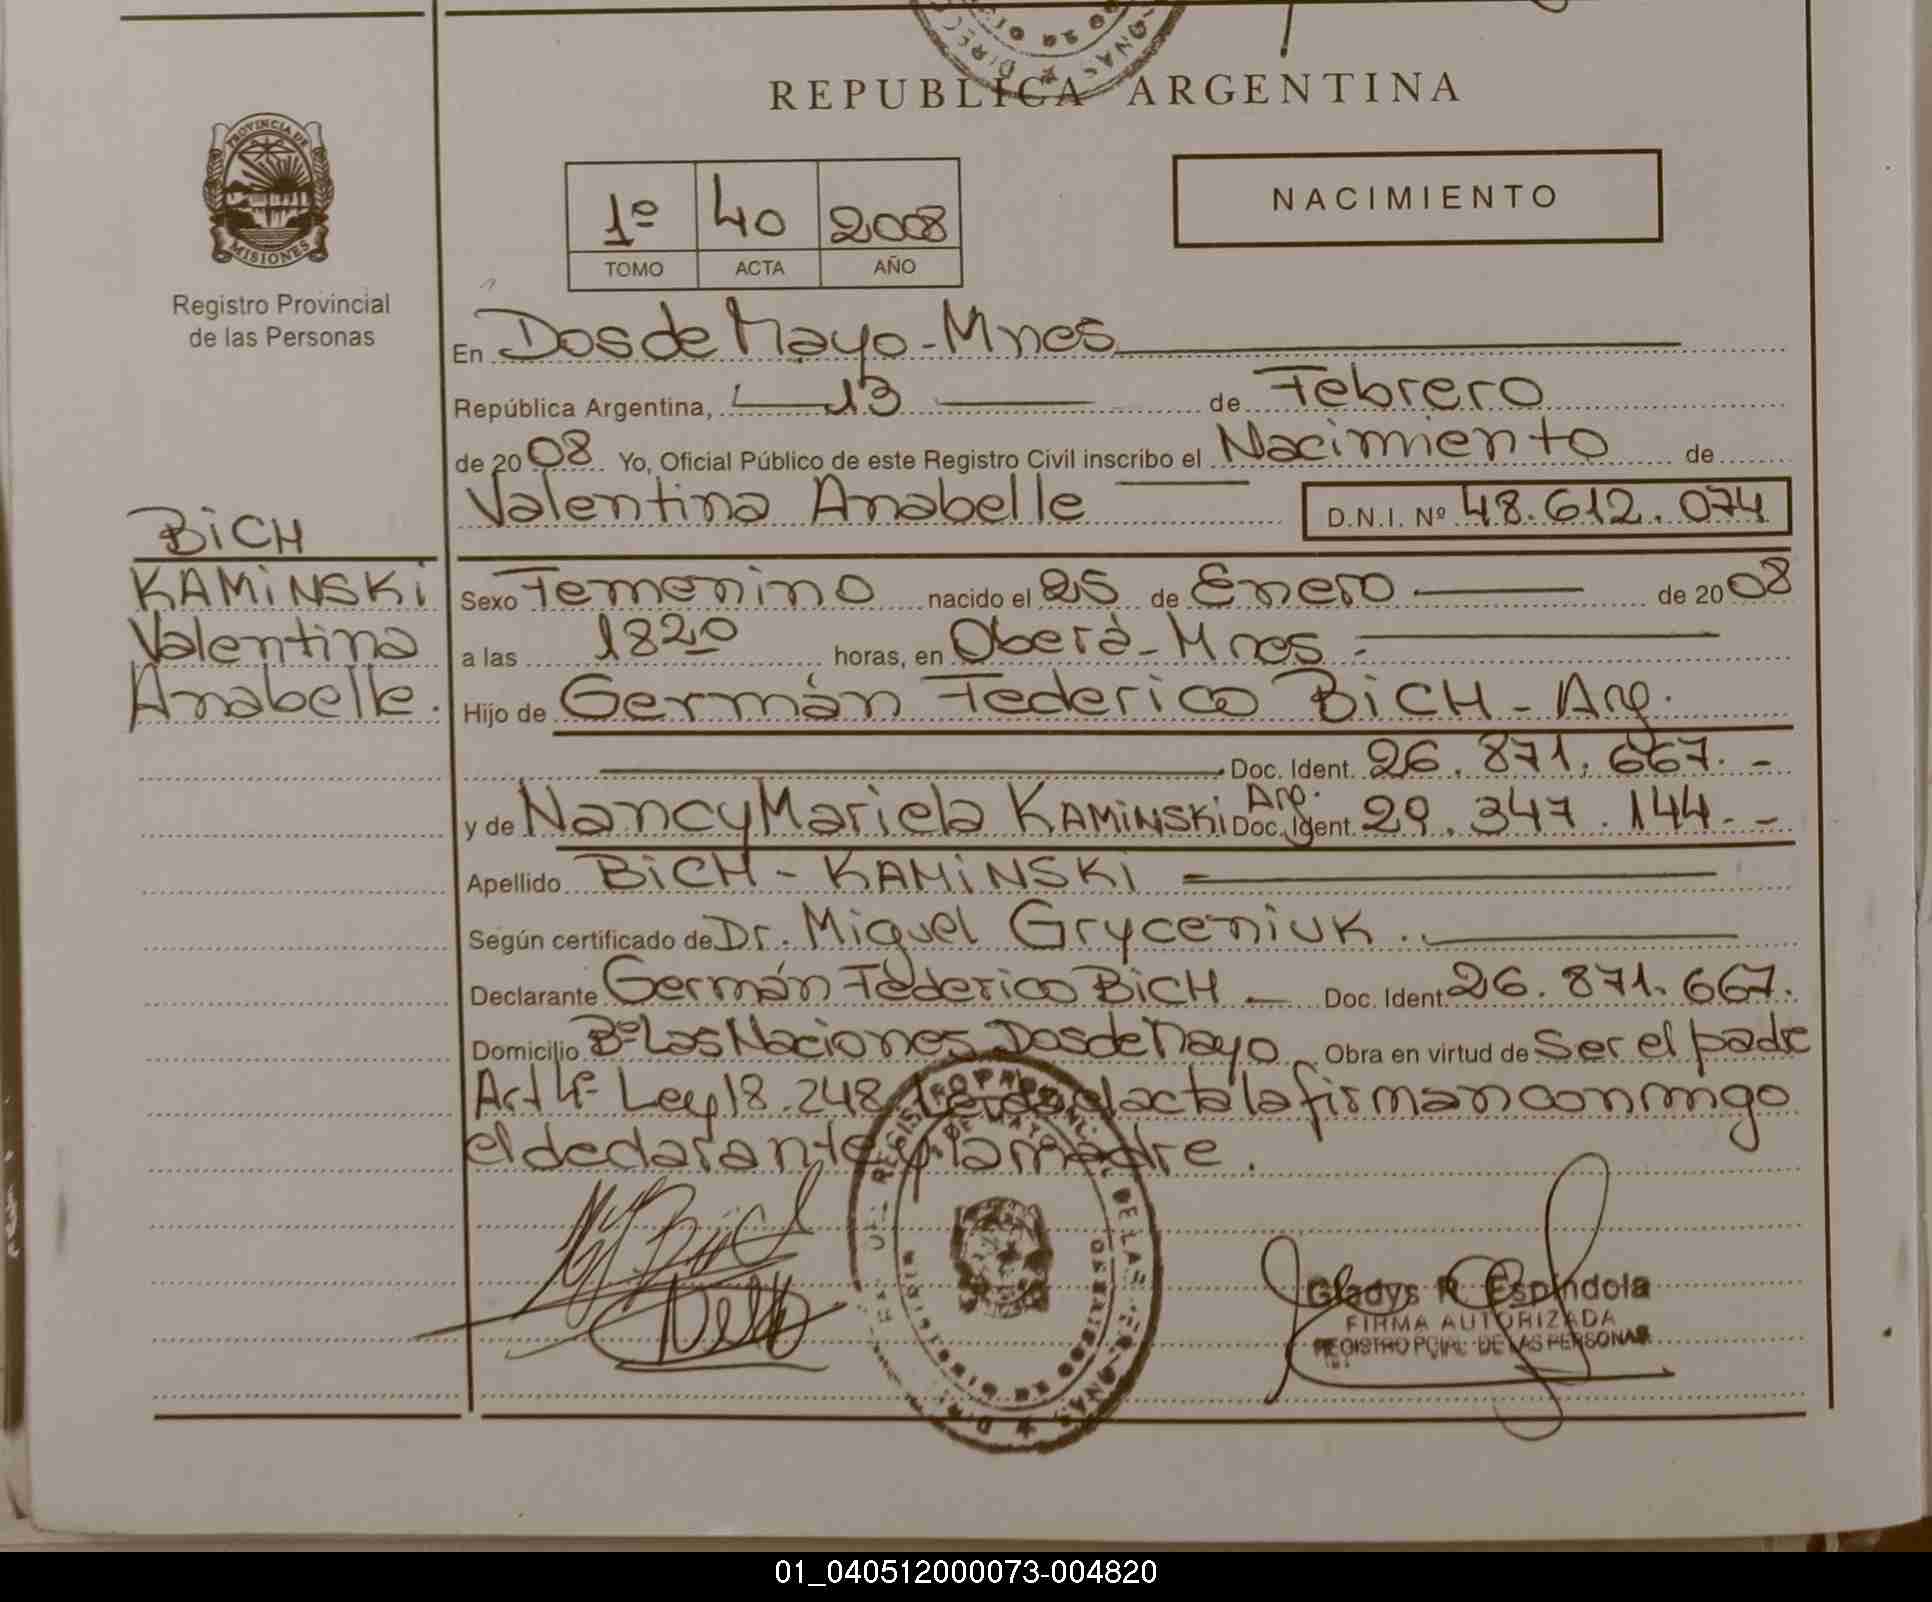 REPUBLICA ARGENTINA
PROVINCIA DE
MISIONES
Registro Provincial
de las Personas
1º 40 2008
TOMO ACTA AÑO
NACIMIENTO
En Dos de Mayo - Mnes
República Argentina, 13 de Febrero
de 20 08 Yo, Oficial Público de este Registro Civil inscribo el Nacimiento de
Valentina Anabelle D.N.I. Nº 48.612.074
BiCH
KAMiNSKi
Valentina
Anabelle.
Sexo Femenino nacido el 25 de Enero de 20 08
a las 18 20 horas, en Oberá - Mnes -
Hijo de Germán Federico BiCH - Arg.
Doc. Ident. 26.871.667. -
y de Nancy Mariela KAMiNSKi Arg. Doc. Ident. 29.347.144. -
Apellido BiCH - KAMiNSKi
Según certificado de Dr. Miguel Gryceniuk.
Declarante Germán Federico BiCH - Doc. Ident. 26.871.667.
Domicilio Bº Las Naciones Dos de Mayo Obra en virtud de Ser el padre
Art 4º Ley 18.248 Leida el acta la firman conmigo
el declarante y la madre.
Gladys R. Espíndola
FIRMA AUTORIZADA
REGISTRO PCIAL. DE LAS PERSONAS
01_040512000073-004820